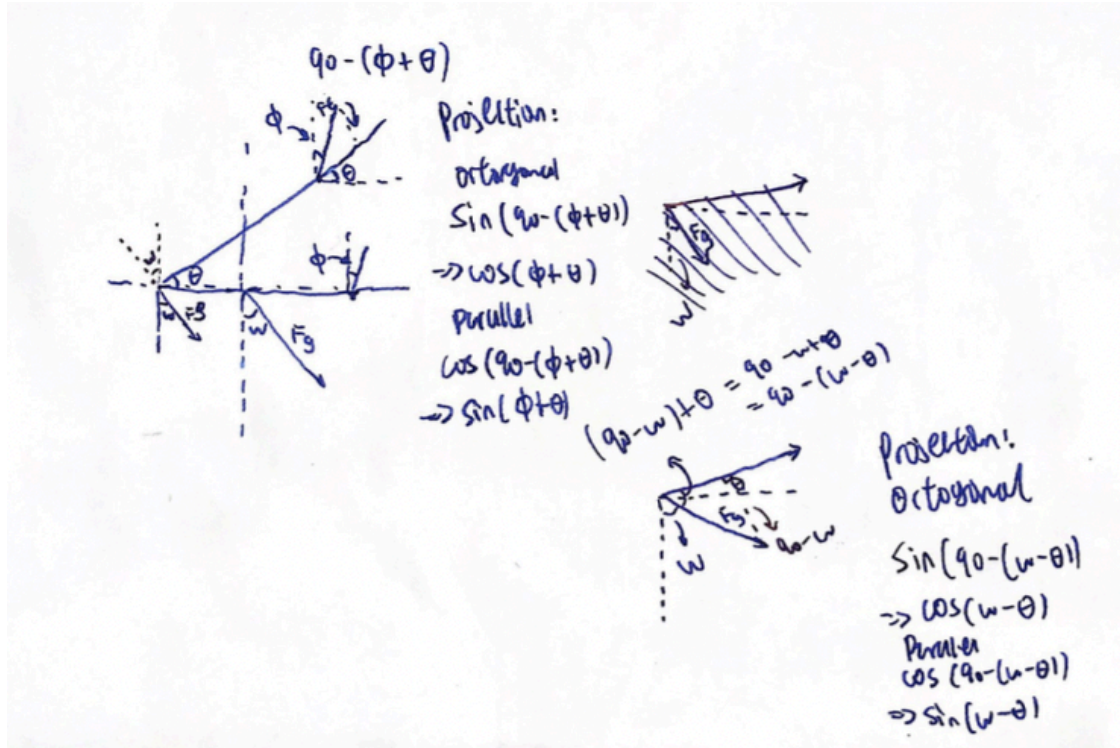 90-(ϕ+θ)
ϕ
θ
Projection:
ortogonal
sin(90-(ϕ+θ))
=> cos(ϕ+θ)
parallel
cos(90-(ϕ+θ))
=> sin(ϕ+θ)
θ
ϕ
w
Fg
Fg
w
(90-w)+θ = 90-w+θ
= 90-(w-θ)
θ
Fg
w
90-w
Projection:
Ortogonal
sin(90-(w-θ))
=> cos(w-θ)
Parallel
cos(90-(w-θ))
=> sin(w-θ)